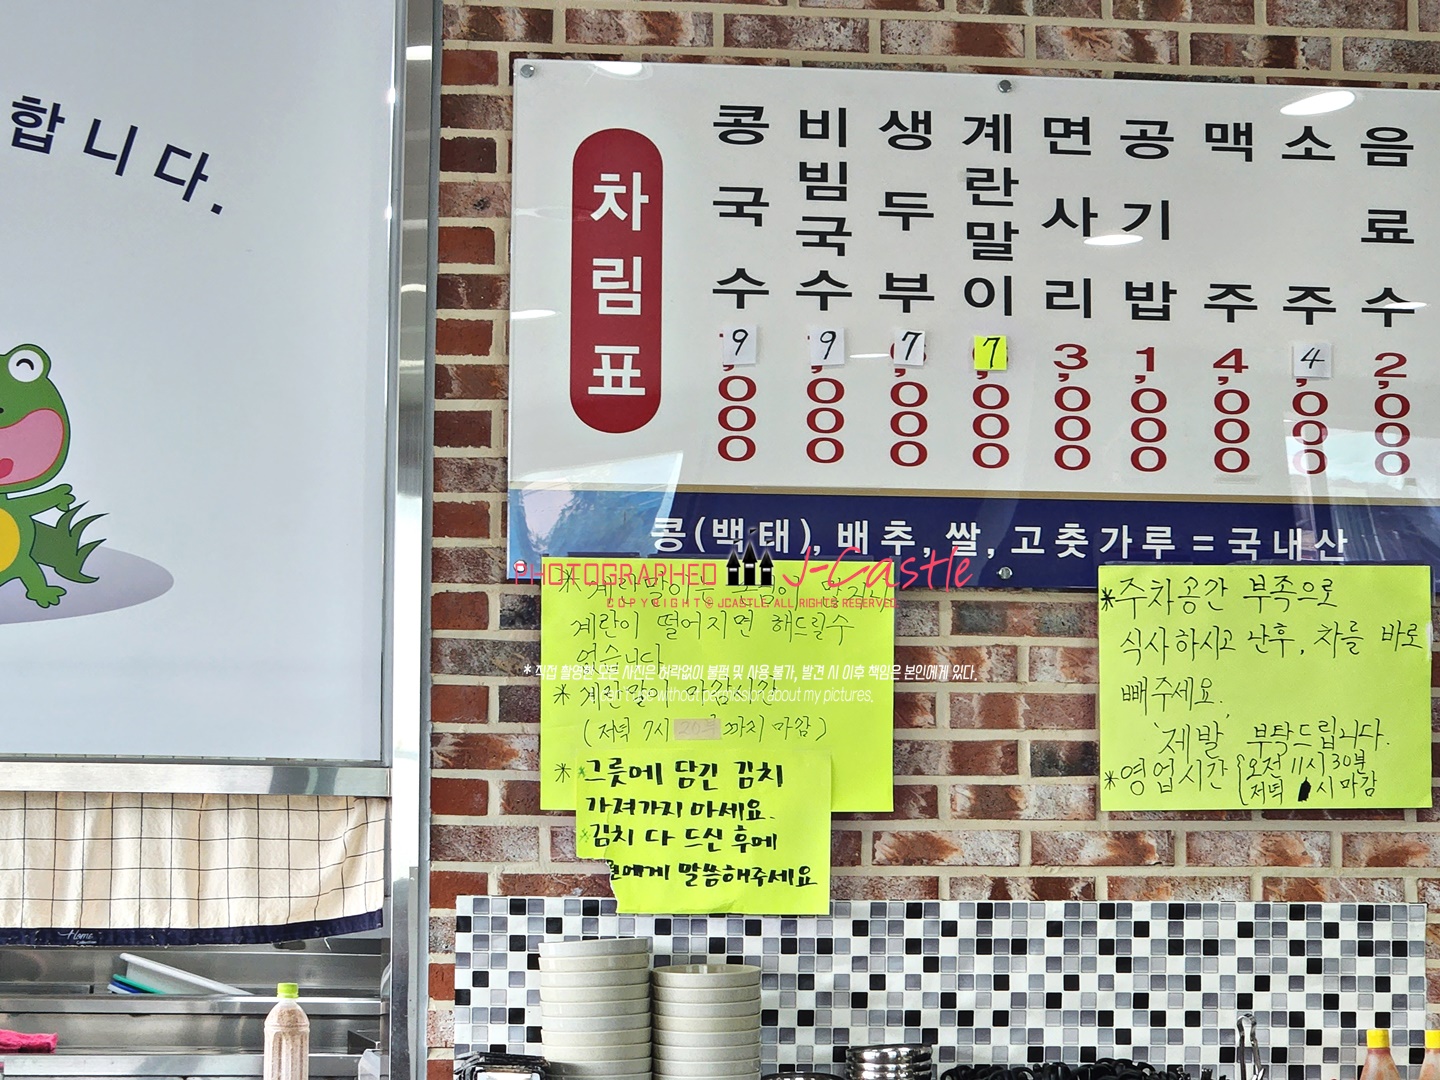 합니다.
차림표
콩국수 9,000
비빔국수 9,000
생두부 7,000
계란말이 7,000
면사리 3,000
공기밥 1,000
맥주 4,000
소주 4,000
음료수 2,000
콩(백태), 배추, 쌀, 고춧가루 = 국내산
PHOTOGRAPHED J-Castle
COPYRIGHT © JCASTLE. ALL RIGHTS RESERVED.
* 계란말이는
계란이 떨어지면 해드릴수
없습니다
* 직접 촬영한 모든 사진은 허락없이 불펌 및 사용 불가, 발견 시 이후 책임은 본인에게 있다.
* 계란말이 마감시간
without permission about my pictures.
(저녁 7시 까지 마감)
* 그릇에 담긴 김치
가져가지 마세요.
김치 다 드신 후에
말씀해주세요
* 주차공간 부족으로
식사하시고 난후, 차를 바로
빼주세요.
'제발' 부탁드립니다.
* 영업시간 오전 11시 30분
저녁 시 마감
Home